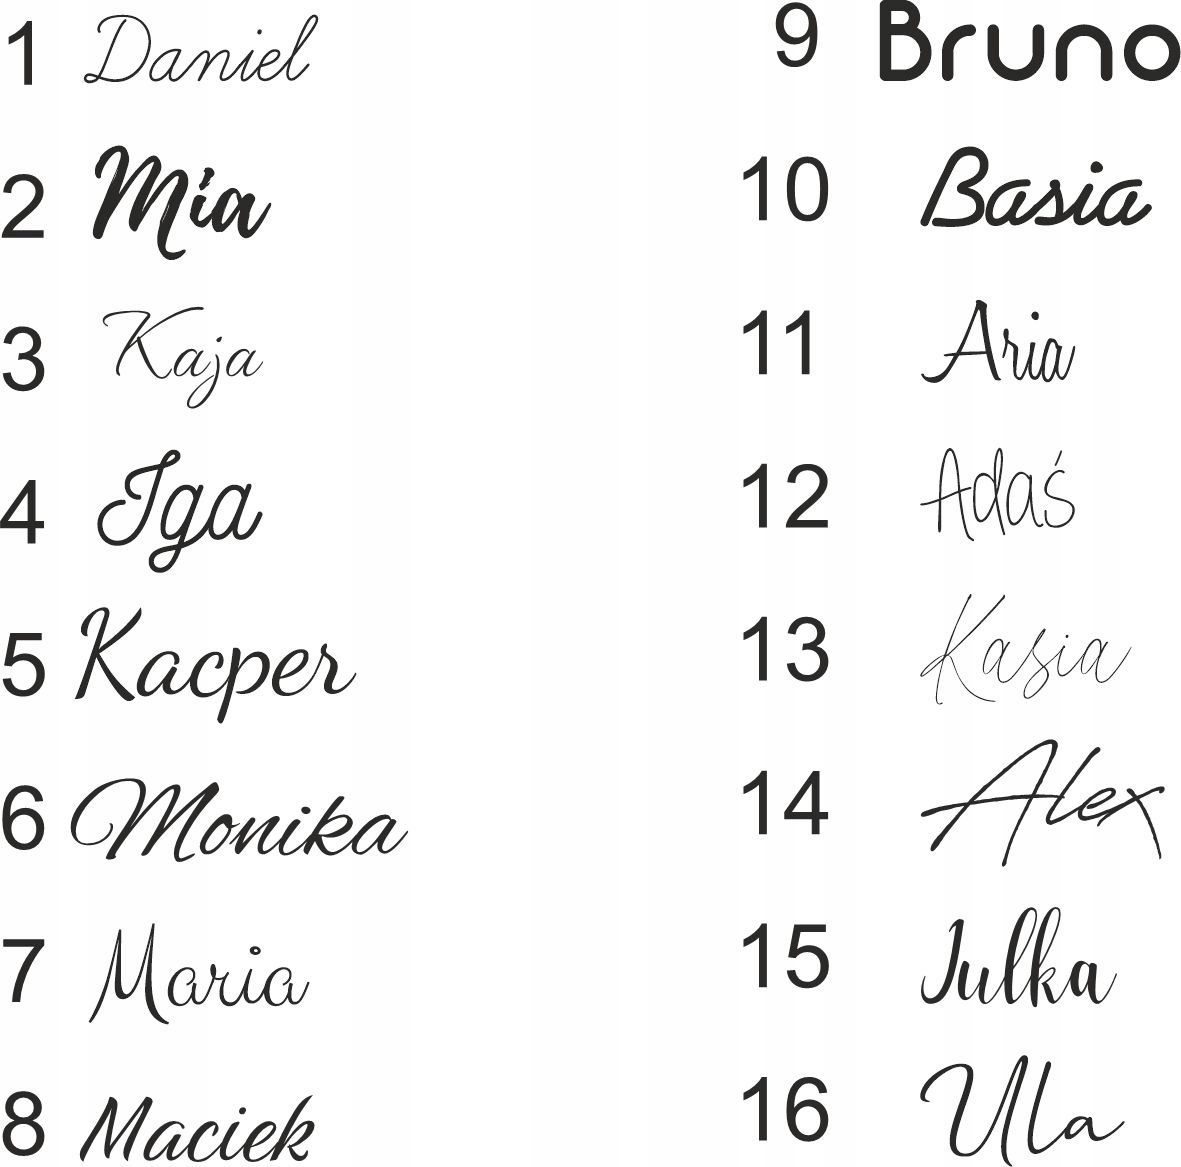 1 Daniel
2 Mia
3 Kaja
4 Iga
5 Kacper
6 Monika
7 Maria
8 Maciek
9 Bruno
10 Basia
11 Aria
12 Adaś
13 Kasia
14 Alex
15 Julka
16 Ula